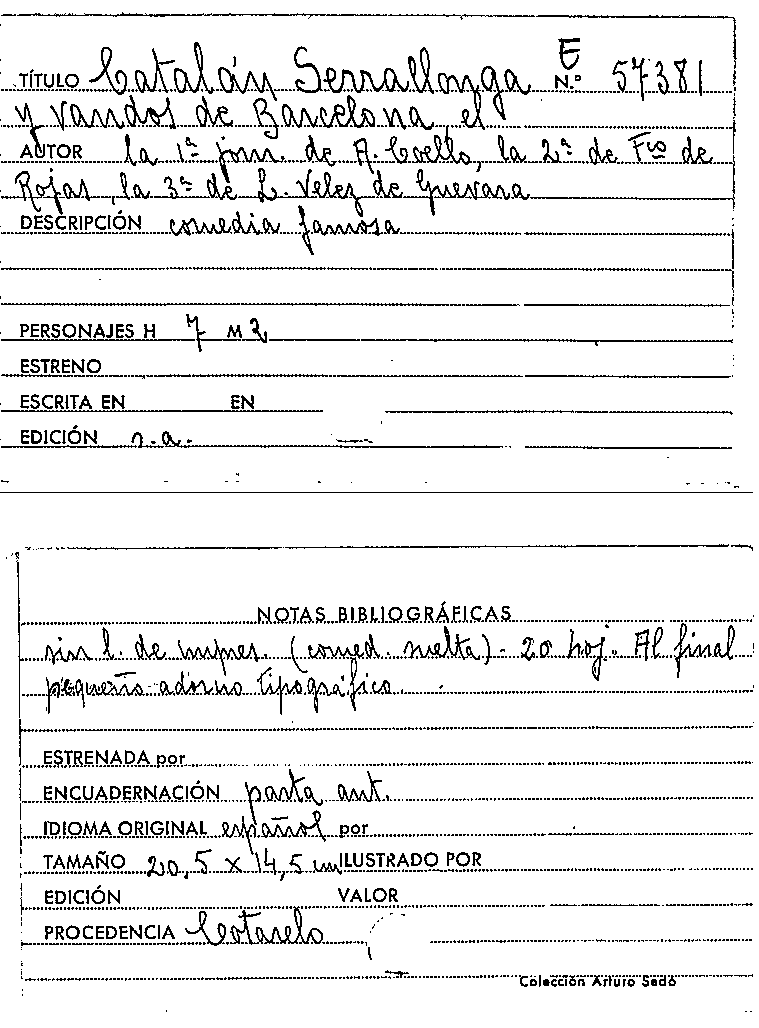 TÍTULO Catalán Serrallonga E N.º 57381
y vandos de Barcelona el
AUTOR la 1ª jorn. de A. Coello, la 2ª de Fco de
Rojas, la 3ª de L. Velez de Guevara
DESCRIPCIÓN comedia famosa
PERSONAJES H 7 M 2
ESTRENO
ESCRITA EN EN
EDICIÓN s.a.
NOTAS BIBLIOGRÁFICAS
sin l. de impres. (comed. suelta) - 20 hoj. Al final
pequeño adorno tipográfico.
ESTRENADA por
ENCUADERNACIÓN pasta ant.
IDIOMA ORIGINAL español por
TAMAÑO 20,5 x 14,5 cm ILUSTRADO POR
EDICIÓN VALOR
PROCEDENCIA Cotarelo
Colección Arturo Sedó